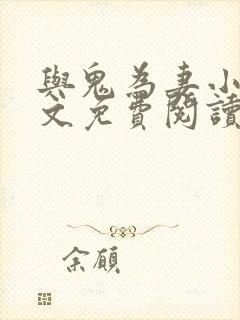 與鬼為妻小
文免費閱讀
余顧